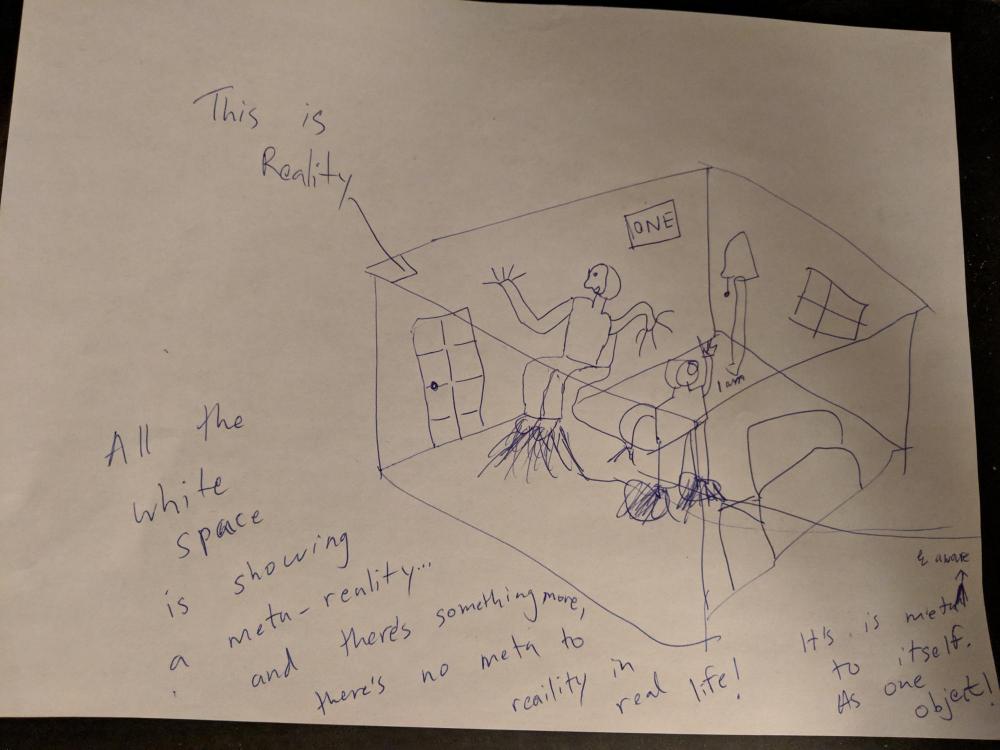 This is
Reality
ONE
I am
All the
white
space
is showing
a meta-reality...
and there's something more,
there's no meta to
reaility in
real life!
& aware
It's is meta
to itself.
As one
object!